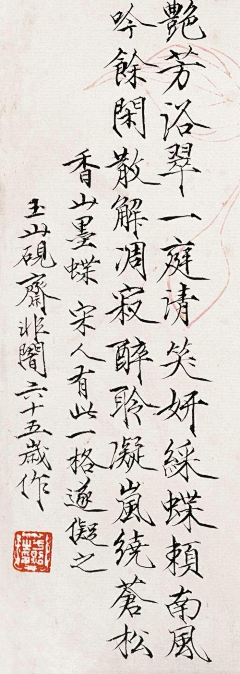 艷芳浴翠一庭清笑妍綵蝶賴南風
吟餘閑散解凋寂醉聆凝嵐繞蒼松
香山墨蝶宋人有此一格遂儗之
玉山硯齋非闇六十五歲作